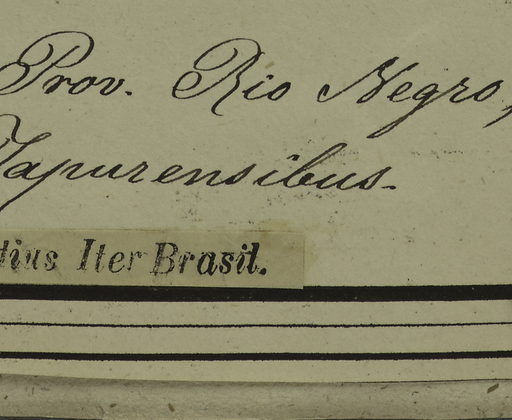 Prov. Rio Negro,
Japurensibus.
tius Iter Brasil.